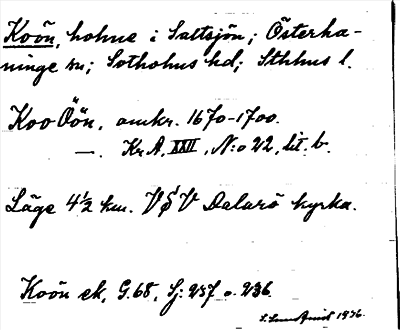 Koön, holme i Saltsjön; Österha-
ninge sn; Sotholms hd; Sthlms l.
Koo Öön, omkr. 1670-1700.
—. Kr.A, XXII, N:o 22, lit. b.
Läge 4½ km. VSV Dalarö kyrka.
Koön ek, G.68, Sj: 257 o. 236.
1936.